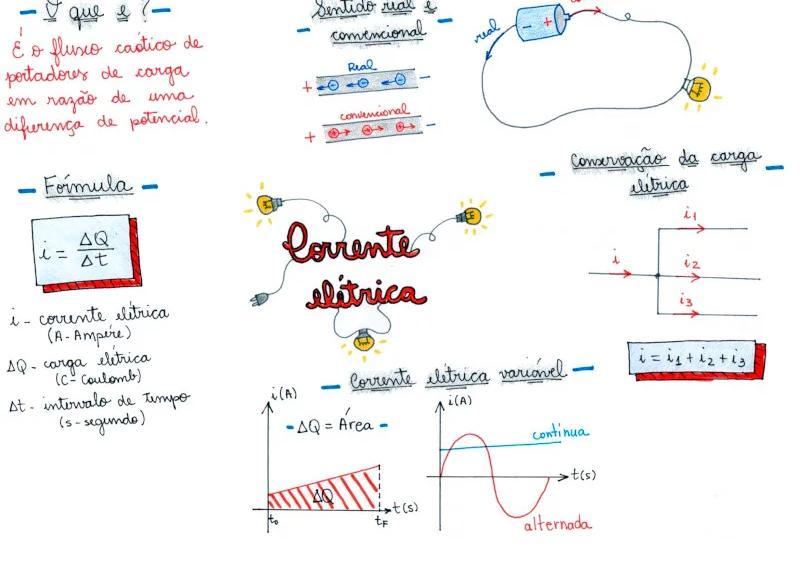 O que e ?
É o fluxo caótico de
portadores de carga
em razão de uma
diferença de potencial.
Sentido real e
convencional
Real
+ - - - -
convencional
+ + + + -
real
- +
Fórmula
i = ΔQ / Δt
i - corrente elétrica
(A - Ampére)
ΔQ - carga elétrica
(C - Coulomb)
Δt - intervalo de tempo
(s - segundo)
Corrente
elétrica
Conservação da carga
elétrica
i1
i
i2
i3
i = i1 + i2 + i3
Corrente elétrica variável
i(A)
- ΔQ = Área -
ΔQ
t(s)
to
tF
i(A)
contínua
t(s)
alternada